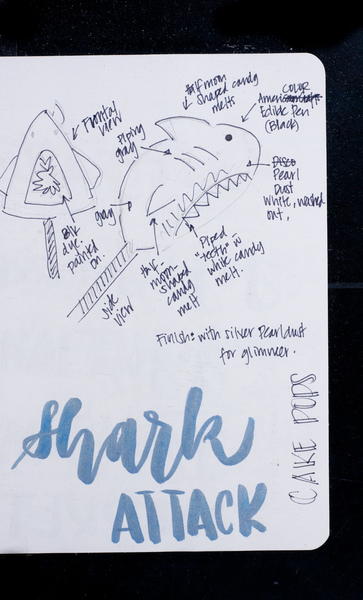 Frontal
view
half moon
shaped candy
melts
AmeriColor
Edible Pen
(Black)
Piping
gray
Disco
Pearl
Dust
white, washed
out,
gray
painted
on.
side
view
half-
moon-
shaped
candy
melt
Piped
"teeth" w
white candy
melt.
Finish: with silver Pearl dust
for glimmer.
CAKE POPS
shark
ATTACK